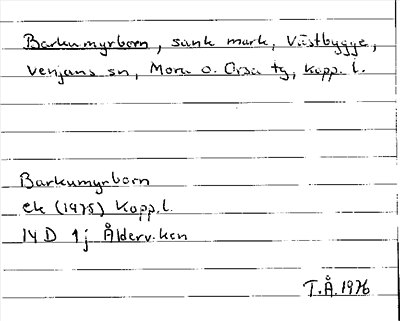 Barkumyrborn, sank mark, Västbygge,
Venjans sn, Mora o. Orsa tg, Kopp. l.
Barkumyrborn
ek (1975) Kopp. l.
14 D 1j Ålderv.ken
T.Å. 1976